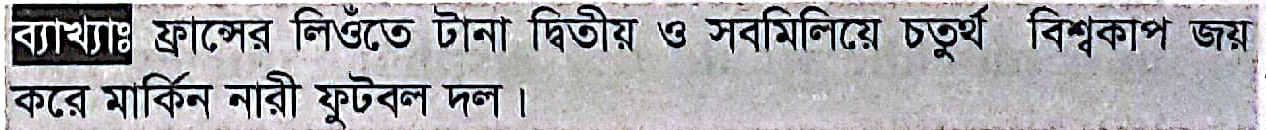 ব্যাখ্যাঃ ফ্রান্সের লিওঁতে টানা দ্বিতীয় ও সবমিলিয়ে চতুর্থ বিশ্বকাপ জয়
করে মার্কিন নারী ফুটবল দল।